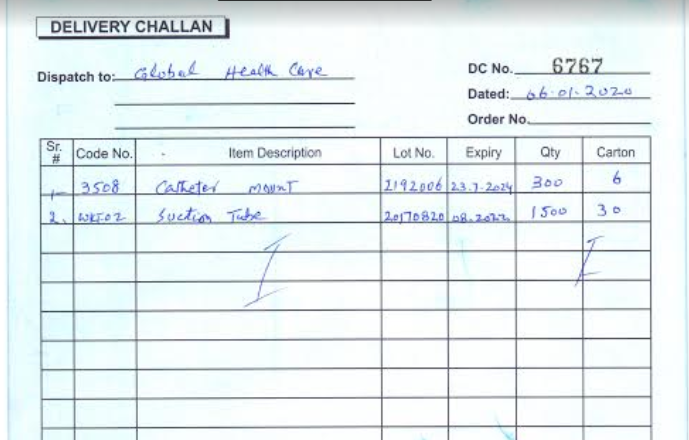 DELIVERY CHALLAN
Dispatch to: Global Health Care
DC No. 6767
Dated: 06-01-2020
Order No.
Sr. # Code No. Item Description Lot No. Expiry Qty Carton
1- 3508 Catheter mount 2192006 23.7-2024 300 6
2. Suction Tube 20170820 08.2022 1500 30